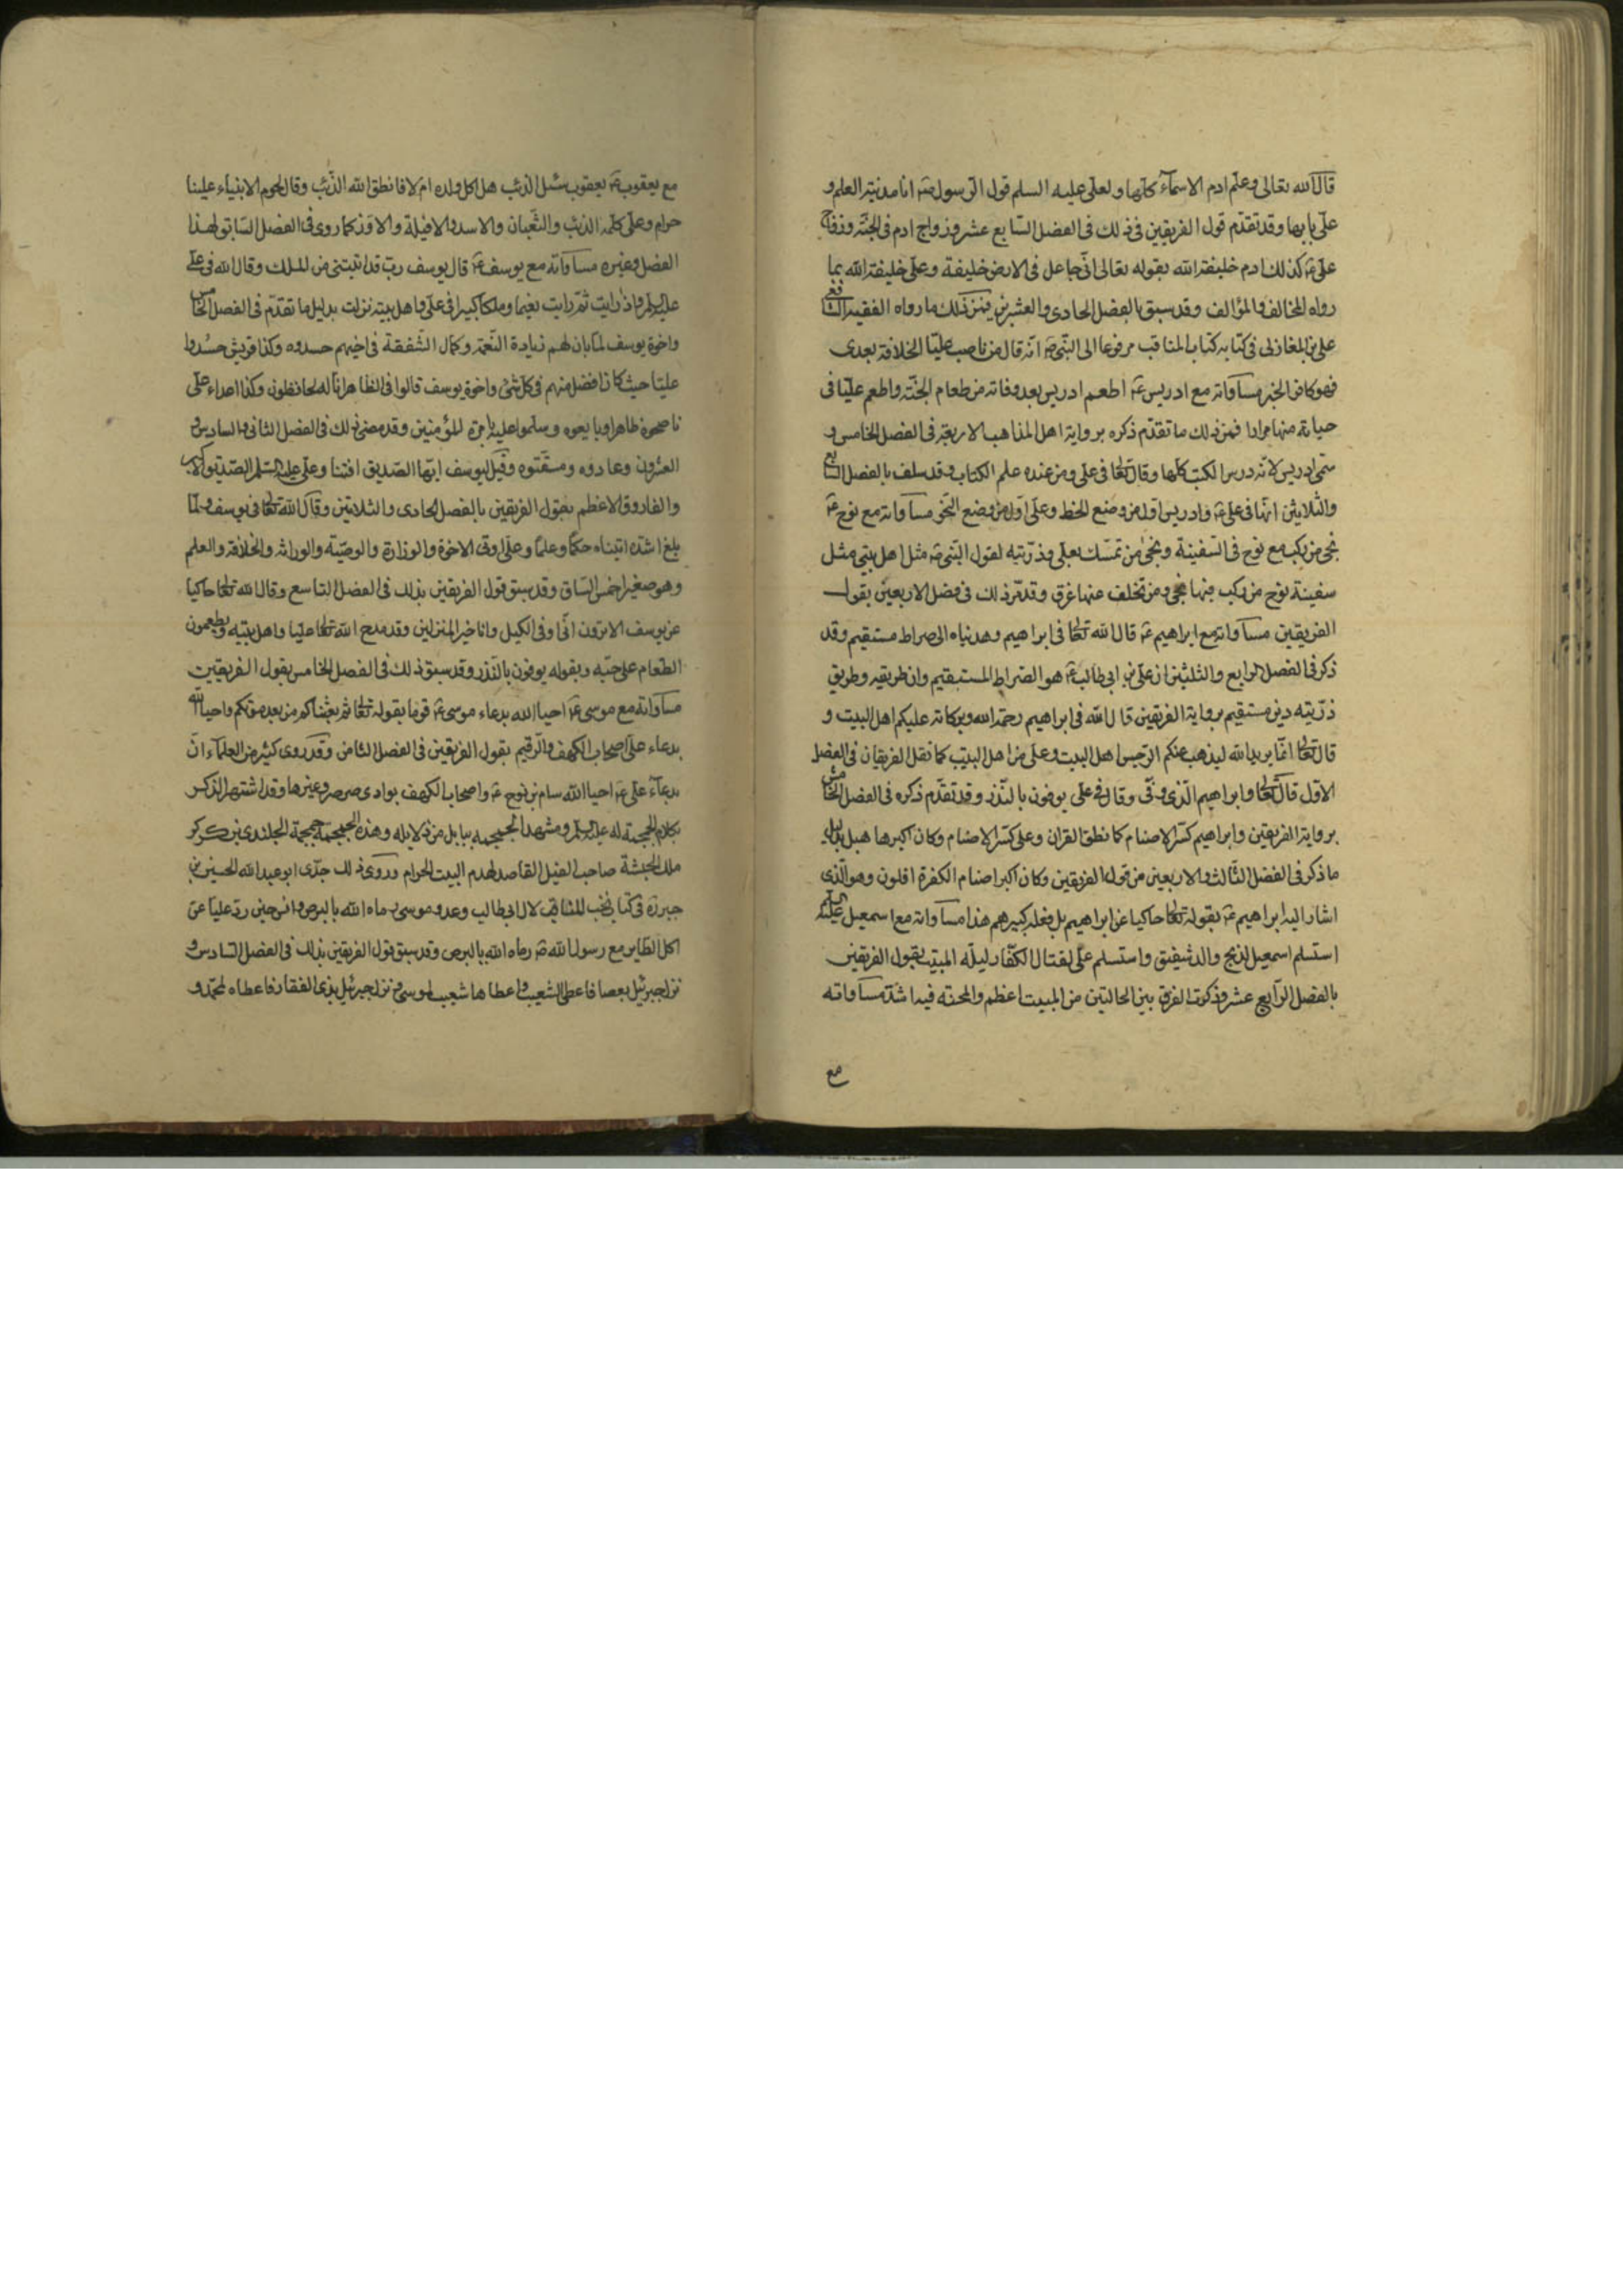 قال الله تعالى وعلم ادم الاسماء كلها ولعلى عليه السلم قول الرسول ص انا مدينة العلم و
على بابها وقد تقدم قول الفريقين فى ذلك فى الفصل السابع عشر وزواج ادم فى الجنة وزفاف
على ع كذلك ادم خليفة الله بقوله تعالى انى جاعل فى الارض خليفة وعلى خليفة الله بما
رواه المخالف والمؤالف وقد سبق بالفصل الحادى والعشرين فمن ذلك ما رواه الفقيه الشافعى
على بن المغازلى فى كتابه كتاب المناقب مرفوعا الى النبى ص انه قال من ناصب عليا الخلافة بعدى
فهو كافر الخبر مساواته مع ادريس ع اطعم ادريس بعد وفاته من طعام الجنة واطعم عليا فى
حياته منها مرارا فمن ذلك ما تقدم ذكره برواية اهل المذاهب الاربعة فى الفصل الخامس و
سمى ادريس لانه درس الكتب كلها وقال تعالى فى على ومن عنده علم الكتاب وقد سلف بالفصل السابع
والثلاثين انها فى على ع وادريس اول من وضع الخط وعلى اول من وضع النحو مساواته مع نوح ع
نجى من ركب مع نوح فى السفينة ونجى من تمسك بعلى وذريته لقول النبى ص مثل اهل بيتى مثل
سفينة نوح من ركب فيها نجى ومن تخلف عنها غرق وقد مر ذلك فى فصل الاربعين بقول
الفريقين مساواته مع ابراهيم ع قال الله تعالى فى ابراهيم وهديناه الى صراط مستقيم وقد
ذكر فى الفصل الرابع والثلثين ان على بن ابى طالب ع هو الصراط المستقيم وان طريقه وطريق
ذريته دين مستقيم برواية الفريقين قال الله فى ابراهيم رحمة الله وبركاته عليكم اهل البيت و
قال تعالى انما يريد الله ليذهب عنكم الرجس اهل البيت وعلى من اهل البيت كما نقل الفريقان فى الفصل
الاول قال تعالى وابراهيم الذى وفى وقال فى على يوفون بالنذر وقد تقدم ذكره فى الفصل الخامس
برواية الفريقين وابراهيم كسر الاصنام كما نطق القران وعلى كسر الاصنام وكان اكبرها هبل بدليل
ما ذكر فى الفصل الثالث والاربعين من قول الفريقين وكان اكبر اصنام الكفرة افلون وهو الذى
اشار اليه ابراهيم ع بقوله تعالى حاكيا عن ابراهيم بل فعله كبيرهم هذا مساواته مع اسمعيل عليه السلم
استسلم اسمعيل لذبح والد شفيق واستسلم على لقتال الكفار ليلة المبيت بقول الفريقين
بالفصل الرابع عشر وذكرت الفرق بين الحالتين من المبيت اعظم والمحنة فيه اشد مساواته
مع
مع يعقوب ع يعقوب سئل الذئب هل اكل ولده ام لا فانطق الله الذئب وقال لحوم الانبياء علينا
حرام وعلى كلمه الذئب والثعبان والاسد والافيلة والاوز كما روى فى الفصل السابق لهذا
الفصل وغيره مساواته مع يوسف ع قال يوسف رب قد اتيتنى من الملك وقال الله فى على
عليه السلم واذ رايت ثم رايت نعيما وملكا كبيرا فى على واهل بيته نزلت بدليل ما تقدم فى الفصل الخامس
واخوة يوسف لما بان لهم زيادة النعمة وكمال الشفقة فى اخيهم حسدوه وكذا قريش حسدوا
عليا حيث كان افضل منهم فى كل شئ واخوة يوسف قالوا فى الظاهر انا له لحافظون وكذا اعداء على
ناصحوه ظاهرا وبايعوه وسلموا عليه بامرة المؤمنين وقد مضى ذلك فى الفصل الثانى والسادس و
العشرون وعادوه ومقتوه وقيل ليوسف ايها الصديق افتنا وعلى عليه السلم الصديق الاكبر
والفاروق الاعظم بقول الفريقين بالفصل الحادى والثلاثين وقال الله تعالى فى يوسف ولما
بلغ اشده اتيناه حكما وعلما وعلى اوتى الاخوة والوزارة والوصية والوراثة والخلافة والعلم
وهو صغير احمش الساق وقد سبق قول الفريقين بذلك فى الفصل التاسع وقال الله تعالى حاكيا
عن يوسف الا ترون انى اوفى الكيل وانا خير المنزلين وقد مدح الله تعالى عليا واهل بيته ويطعمون
الطعام على حبه وبقوله يوفون بالنذر وقد سبق ذلك فى الفصل الخامس بقول الفريقين
مساواته مع موسى ع احيا الله بدعاء موسى ع قوما بقوله تعالى ثم بعثناكم من بعد موتكم واحيا الله
بدعاء على اصحاب الكهف والرقيم بقول الفريقين فى الفصل الثامن وقد روى كثير من العلماء ان
بدعاء على ع احيا الله سام بن نوح ع واصحاب الكهف بوادى صرصر وغيرها وقد اشتهر الذكر
بكلام الجمجمة له عليه السلم ومشهد الجمجمة ببابل من دلايله وهذه الجمجمة جمجمة الجلندى بن كركر
ملك الحبشة صاحب الفيل القاصد لهدم البيت الحرام وروى ذلك جدى ابو عبد الله الحسين بن
جبر ره فى كتاب نخب المناقب لال ابى طالب وعدو موسى رماه الله بالبرص وانس حين رد عليا عن
اكل الطاير مع رسول الله ص رماه الله بالبرص وقد سبق قول الفريقين بذلك فى الفصل السادس و
نزل جبرئيل بعصا فاعطى الشعيب واعطاها شعيب لموسى ونزل جبرئيل بذى الفقار فاعطاه لمحمد و